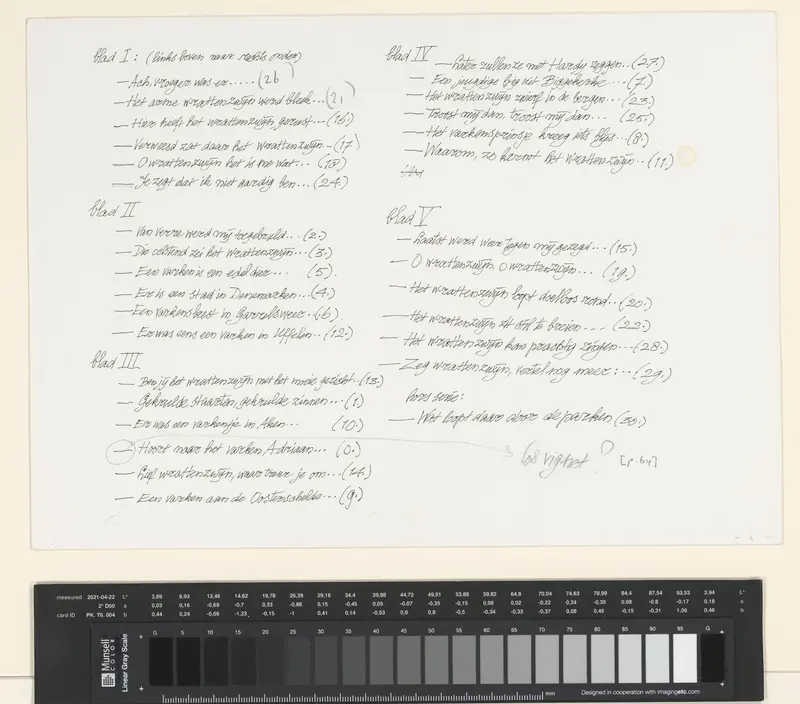 blad I: (links boven naar rechts onder)
— Ach, vroeger was er ..... (26)
— Het arme wrattenzwijn werd bleek... (21)
— Hier heeft het wrattenzwijn gerust... (16.)
— Verweerd zat daar het wrattenzwijn... (17)
— O wrattenzwijn het is me wat... (18)
— Je zegt dat ik niet aardig ben... (24.)
blad II
— Van verre werd mij toegebruld... (2.)
— Die ochtend zei het wrattenzwijn... (3.)
— Een varken is een edel dier... (5).
— Er is een stad in Denemarken... (4.)
— Een varkensbeest in Garrelsweer... (6.)
— Er was eens een varken in Uffelen... (12.)
blad III
— Ben jij het wrattenzwijn met het mooie gezicht. (13.)
— Gekrulde staarten, gekrulde zinnen... (1.)
— Er was een varkentje in Aken... (10.)
— Hoort naar het varken Adriaan... (0.)
— Lief wrattenzwijn, waar treur je om... (14.)
— Een varken aan de Oosterschelde... (9.)
blad IV
— Later zullen ze met Hardy zeggen.. (27.)
— Een jeugdige big uit Biggekerke... (7.)
— Het wrattenzwijn zwierf in de bergen... (23.)
— Troost mij dan, troost mij dan... (25.)
— Het varkensprinsje kreeg iets blijs... (8.)
— Waarom, zo kermt het wrattenzwijn... (11.)
blad V
— Laatst werd weer tegen mij gezegd... (15.)
— O wrattenzwijn, O wrattenzwijn... (19.)
— Het wrattenzwijn loopt doelloos rond... (20.)
— Het wrattenzwijn zit stil te breien... (22.)
— Het wrattenzwijn kan prachtig zingen... (28.)
— Zeg wrattenzwijn, vertel nog meer:... (29.)
hors serie:
— Wat loopt daar door de parken (30.)
los vignet? [p. 64]
measured 2021-04-23 L* 3,89 8,93 12,46 14,62 19,78 26,38 29,16 34,4 39,68 44,72 49,51 53,88 59,82 64,8 70,04 74,63 78,98 84,4 87,54 93,53 3,94 L*
2° D50 a 0,03 0,16 -0,69 -0,7 0,33 -0,88 0,15 -0,45 0,05 -0,07 -0,35 -0,15 0,08 0,02 -0,22 0,24 -0,35 0,08 -0,8 -0,17 0,18 a
card ID PK. T6. 004 b 0,44 0,24 -0,66 -1,23 -0,15 -1 0,41 0,14 -0,53 0,9 0,8 -0,5 -0,34 -0,33 -0,37 0,08 0,45 -0,15 -0,31 1,06 0,46 b
Munsell COLOR
Linear Gray Scale
G 5 10 15 20 25 30 35 40 45 50 55 60 65 70 75 80 85 90 95 G
mm
Designed in cooperation with imagingetc.com